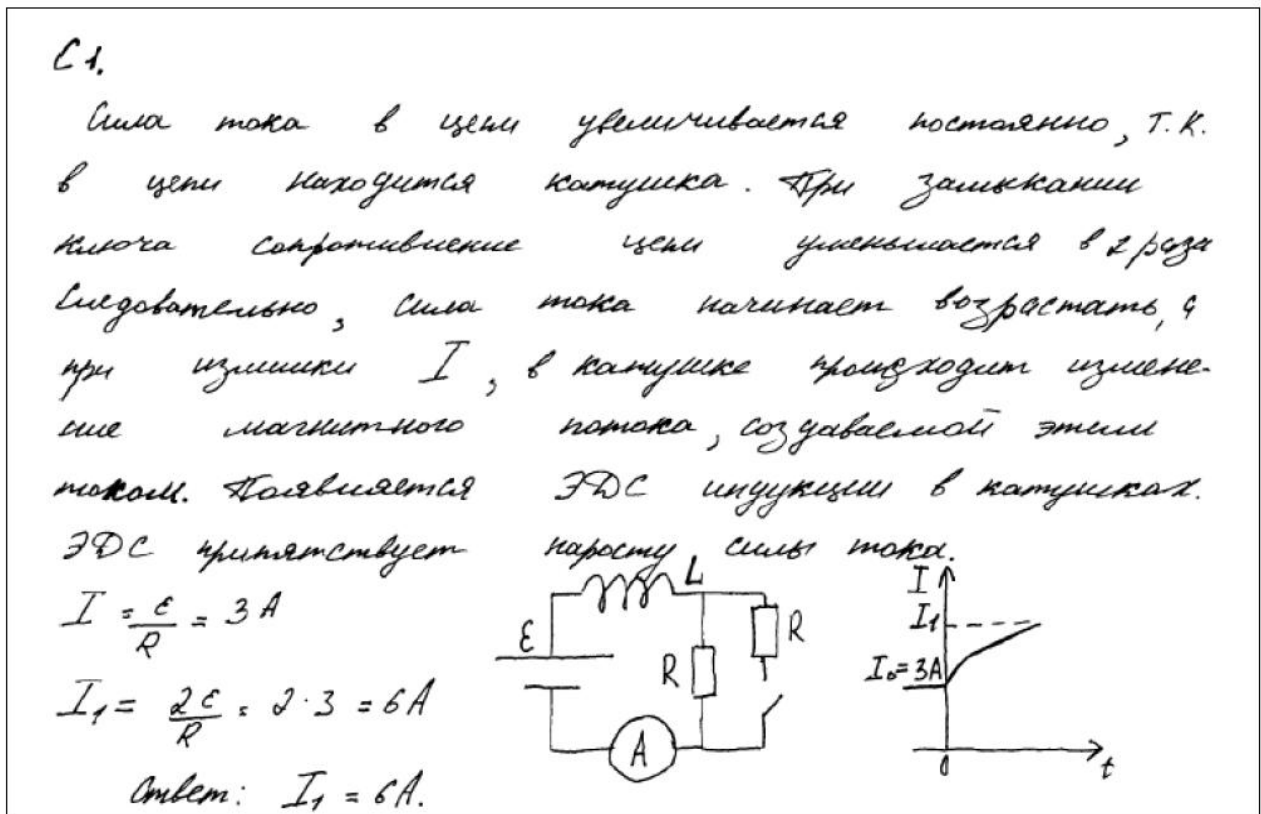 С1.
Сила тока в цепи увеличивается постоянно, т.к.
в цепи находится катушка. При замыкании
ключа сопротивление цепи уменьшается в 2 раза
Следовательно, сила тока начинает возрастать, а
при I, в катушке происходит измене-
ние магнитного потока, создаваемой этим
током. Появляется ЭДС индукции в катушках.
ЭДС припятствует наросту силы тока.
I = ε/R = 3 А
I₁ = 2ε/R = 2·3 = 6А
Ответ: I₁ = 6А.
L
ε
R
R
A
I
I₁
I₀=3А
0
t